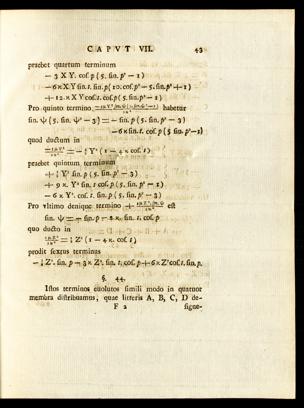 CAPVT VII. 43
praebet quartum terminum
— 3 X Y. cof p (5. fin. p² — 1)
— 6 κ X Y fin. s. fin. p (10. cof p² — 5. fin. p² + 1)
+ 12 κ X Y cof s. cof p (5. fin. p² — 1)
Pro quinto termino habetur
fin. ψ (5. fin. ψ² — 3) = — fin. p (5. fin. p² — 3)
— 6 κ fin. s. cof p (5. fin. p² — 1)
quod ductum in
Y² (1 — 4 κ. cof s)
praebet quintum terminum
Y² fin. p (5. fin. p² — 3)
+ 9 κ. Y² fin. s cof p (5. fin. p² — 1)
— 6 κ. Y². cof s. fin. p (5. fin. p² — 3)
Pro vltimo denique termino est
fin. ψ = — fin. p — 2 κ. fin. s. cof p
quo ducto in
Z² (1 — 4 κ. cof s)
prodit fextus terminus
Z². fin. p — 3 κ Z². fin. s. cof p + 6 κ Z² cof s. fin. p.
§. 44.
Iftos terminos euolutos fimili modo in quatuor
membra diftribuamus, quae litteris A, B, C, D de-
F 2 figne-